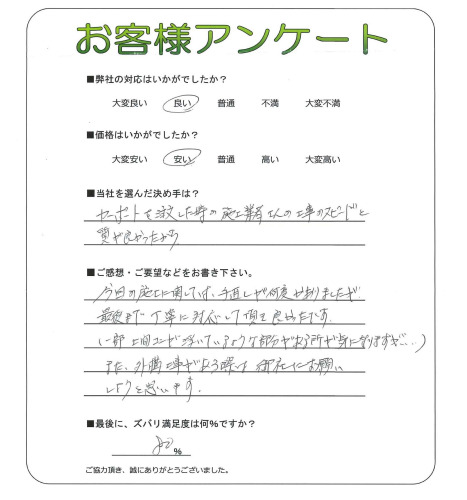 お客様アンケート
■弊社の対応はいかがでしたか？
大変良い 良い 普通 不満 大変不満
■価格はいかがでしたか？
大変安い 安い 普通 高い 大変高い
■当社を選んだ決め手は？
カーポートを注文した時の施工業者さんの工事のスピードと
質が良かったから
■ご感想・ご要望などをお書き下さい。
今回の施工に関しては、手直しが何度かありましたが
最後まで丁寧に対応して頂き良かったです。
(一部土間コンが浮いているような部分がある所が気になりますが…)
また、外構工事がある際は御社にお願い
しようと思います。
■最後に、ズバリ満足度は何%ですか？
80 %
ご協力頂き、誠にありがとうございました。